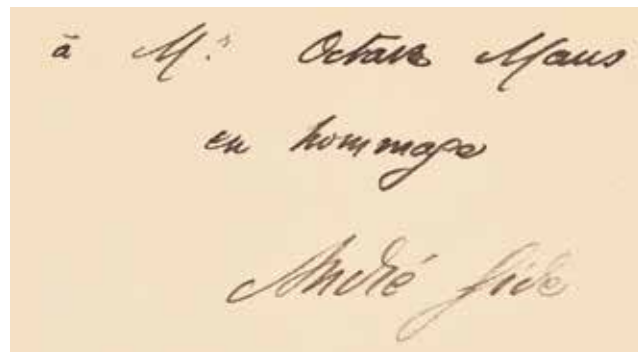 à Mr Octave Maus
en hommage
André Gide